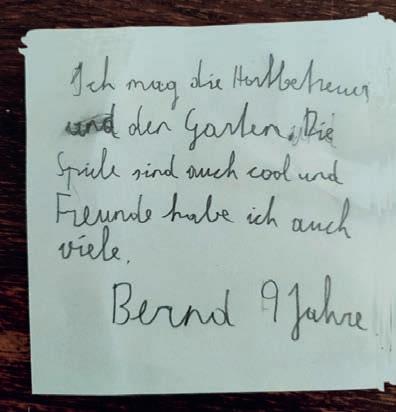 Ich mag die Hortbetreuer
und den Garten. Die
Spiele sind auch cool und
Freunde habe ich auch
viele.
Bernd 9 Jahre